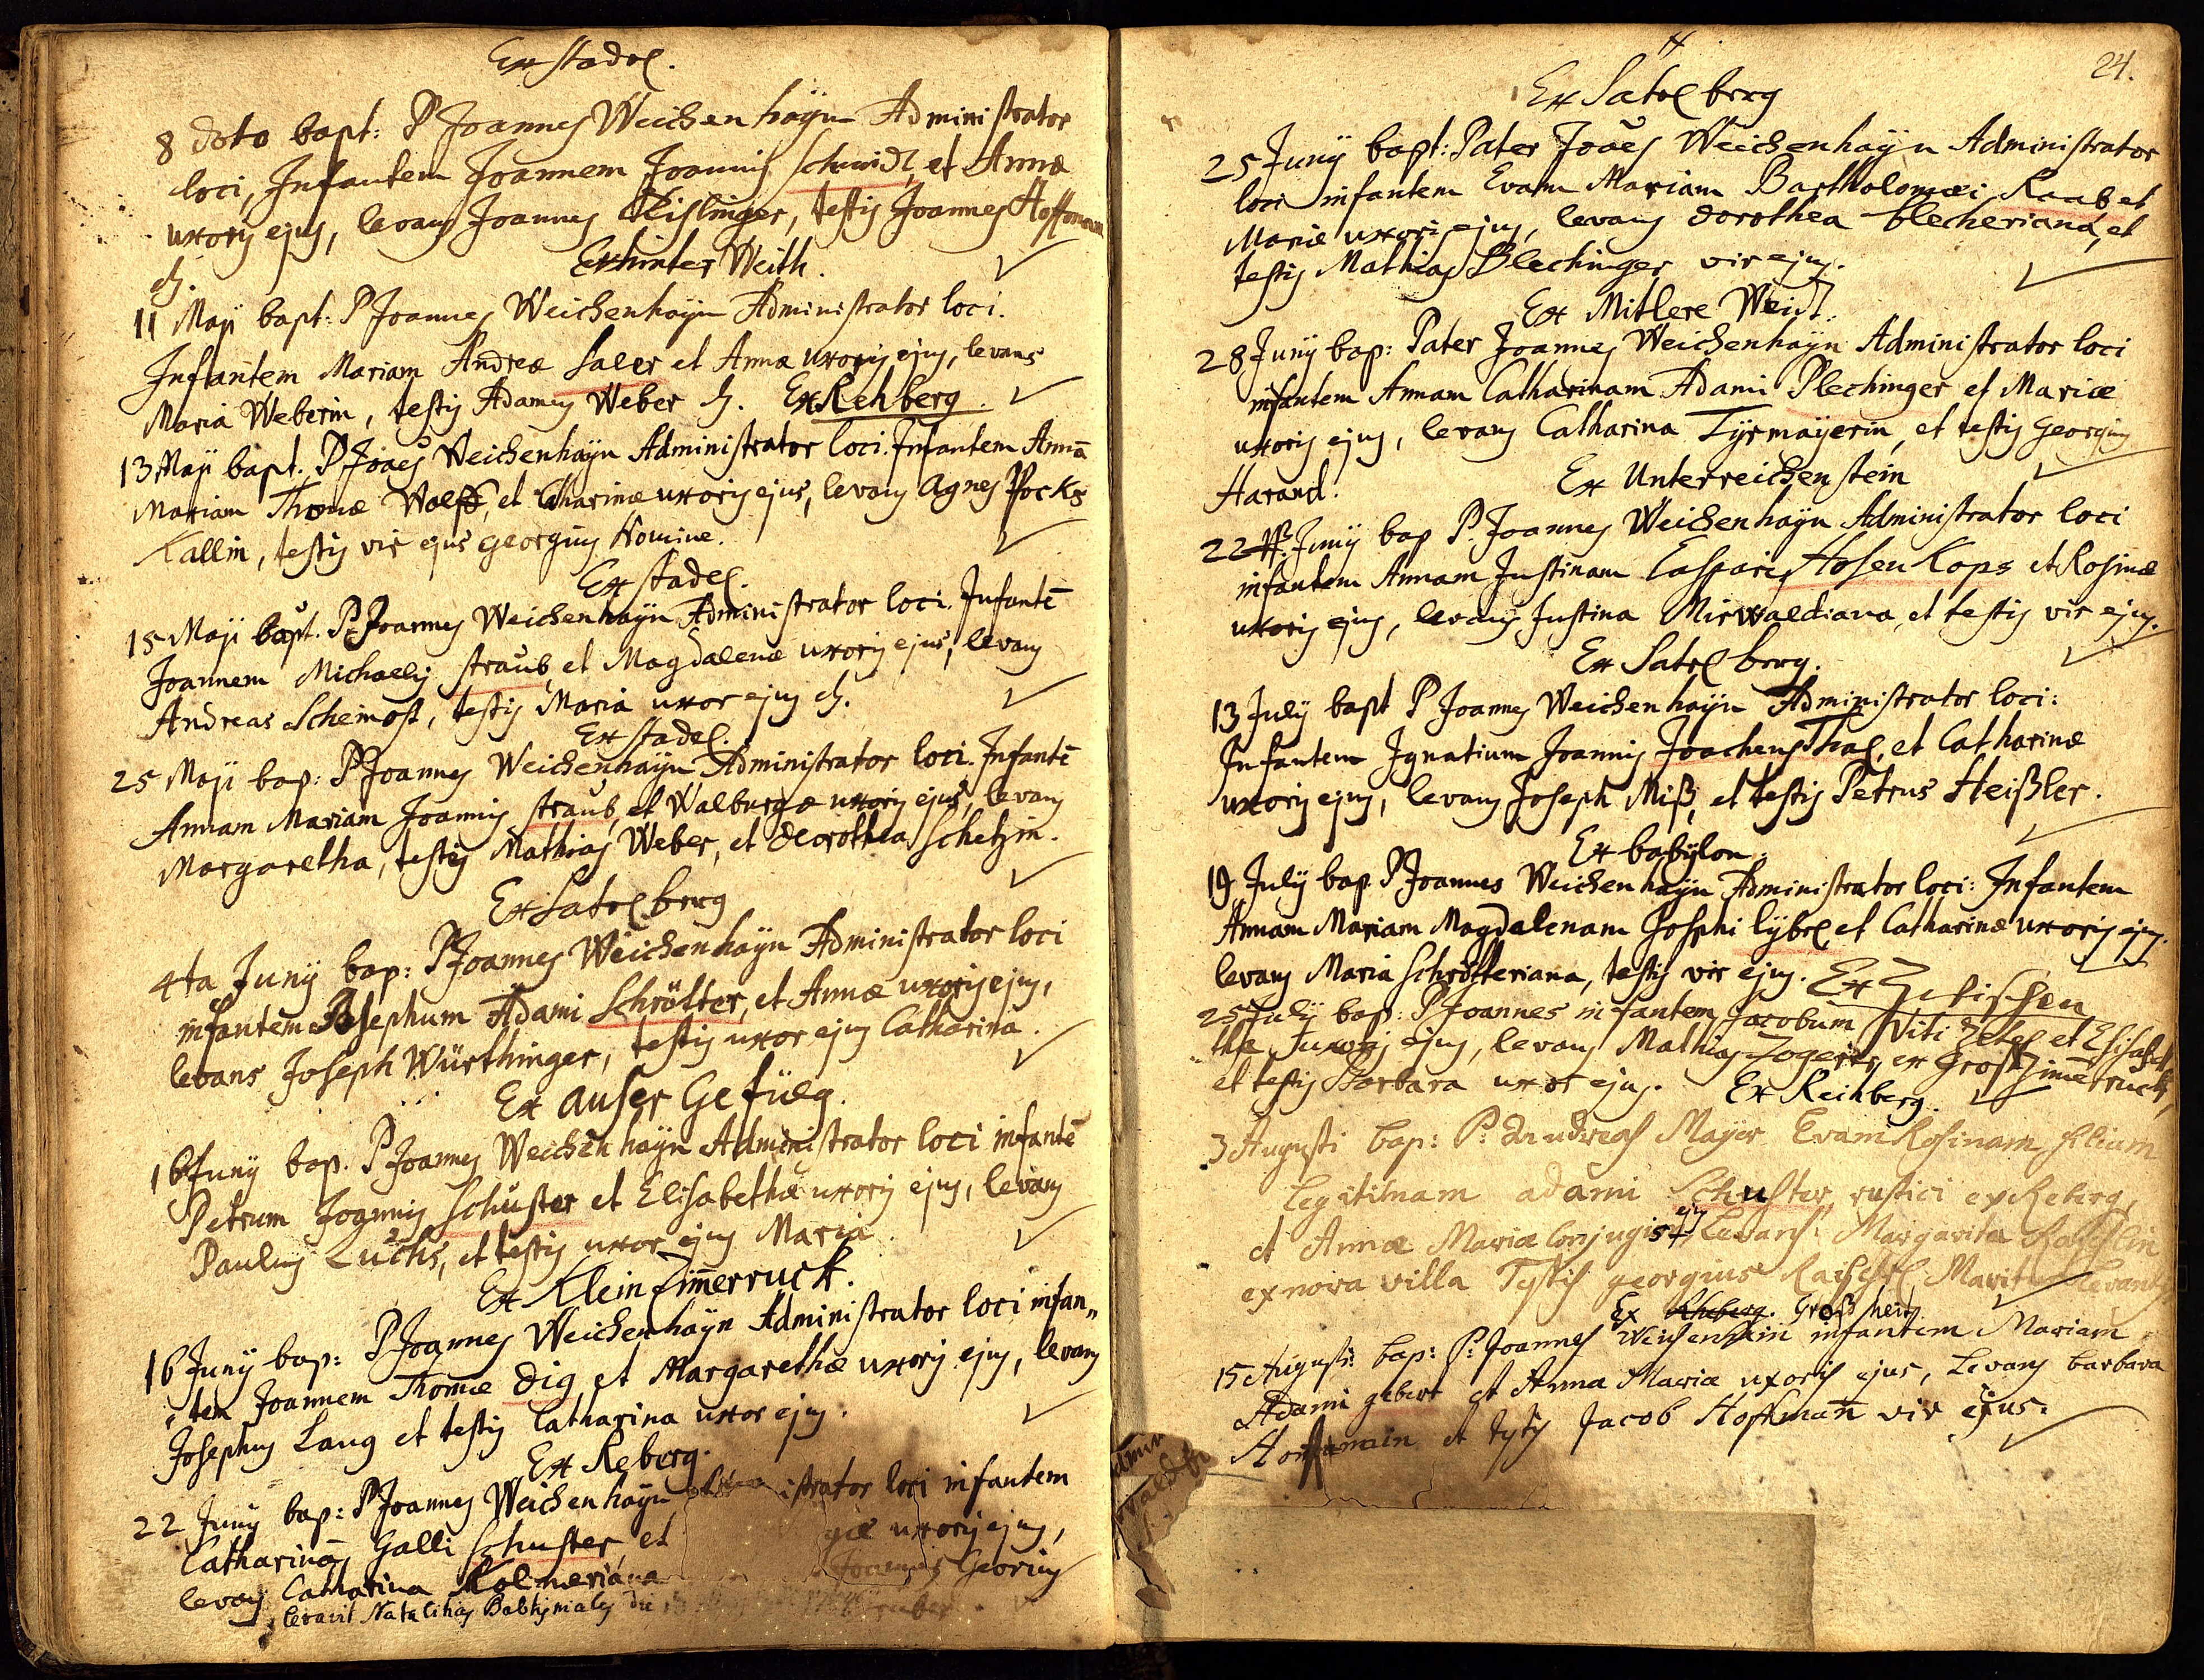 Ex Stadel.
8 dēto bapt: P Joannes Weichenhayn Administrator
loci, Infantem Joannem Joannis Schmidt, et Annæ
uxoris ejus, levans Joannes Kislinger, testis Joannes Hoffmann
Ex hinter Weith.
11 Maji bapt: P Joannes Weichenhayn Administrator loci.
Infantem Mariam Andreæ Saler et Annæ uxoris ejus, levans
Maria Weberin, testis Adamus Weber Ex Rehberg.
13 Maji bapt. P Joaēs Weichenhayn Administrator loci. Infantem Annā
Mariam Thomæ Wolff, et Catharinæ uxoris ejus, levans Agnes Pocks
Kallin, testis vir ejus Georgius Nomine.
Ex Stadel.
15 Maji bapt. P: Joannes Weichenhayn Administrator loci. Infantē
Joannem Michaelis Straub, et Magdalenæ uxoris ejus, levans
Andreas Scheinost, testis Maria uxor ejus
Ex Stadel.
25 Maji bap: P Joannes Weichenhayn Administrator loci. Infantē
Annam Mariam Joannis Straub, et Walburgæ uxoris ejus, levans
Margaretha, testis Mathias Weber, et Dorothea Schetzin.
Ex Satelberg
4ta Junij bap: P Joannes Weichenhayn Administrator loci
infantem Josephum Adami Schrötter, et Annæ uxoris ejus,
levans Joseph Würthinger, testis uxor ejus Catharina.
Ex auser Gefüeg.
16 Junij bap. P Joannes Weichenhayn Administrator loci infantē
Petrum Joannis Schuster et Elisabethæ uxoris ejus, levans
Paulus Luchs, et testis uxor ejus Maria
Ex Klein Zim̄erruck.
16 Junij bap: P Joannes Weichenhayn Administrator loci infan„
tem Joannem Thomæ Dig, et Margarethæ uxoris ejus, levans
Josephus Lang et testis Catharina uxor ejus.
Ex Reberg.
22 Junij bap: P Joannes Weichenhayn istrator loci infantem
Catharinā Galli Schuster et uxoris ejus,
levans Catharina Kolmeriana Joannes Georius
levavit
24.
Ex Satelberg
25 Junij bapt: Pater Joāes Weichenhayn Administrator
loci infantem Evam Mariam Bartholomæi Raab et
Mariæ uxoris ejus, levans Dorothea Blecheriana, et
testis Mathias Blechinger vir ejus.
Ex Mitlere Weidt.
28 Junij bap: Pater Joannes Weichenhayn Administrator loci
infantem Annam Catharinam Adami Plechinger et Mariæ
uxoris ejus, levans Catharina Tyrmayerin, et testis Georgius
Harand.
Ex Unterreichenstein
22 Junij bap P. Joannes Weichenhayn Administrator loci
infantem Annam Justinam Caspari Hosenkops et Rosinæ
uxoris ejus, levans Justina Mirwaldiana, et testis vir ejus.
Ex Satelberg.
13 July bapt P Joannes Weichenhayn Administrator loci:
Infantem Ignatium Joannis Joachensthal, et Catharinæ
uxoris ejus, levans Joseph Miß, et testis Petrus Heißler.
Ex babylon.
19 July bap. P Joannes Weichenhayn Administrator loci: Infantem
Annam Mariam Magdalenam Josephi Lybel et Catharinæ uxoris ejus.
levans Maria Schrötteriana, testis vir ejus. Ex
25 July bap: P Joannes infantem Jacobum Viti Zetel et Elisabe
thæ uxoris ejus, levans Mathias ex Groszim̄erruck,
et testis Barbara uxor ejus. Ex Reihberg.
3 Augusti bap: P: Andreas Mayer Evam Rosinam filiam
legitimam adami Schuster, rustici ex Reberg,
et Annæ Mariæ conjugis ejus Levans: Margarita
ex nova villa Testis georgius Maritus Levantis
Ex Großheid
15 Augusti bap: P: Joannes Weisenhain infantem Mariam
Adami gebert et Anna Mariæ uxoris ejus, Levans barbara
Hoffmanin et testis Jacob Hoffman̄ vir ejus.